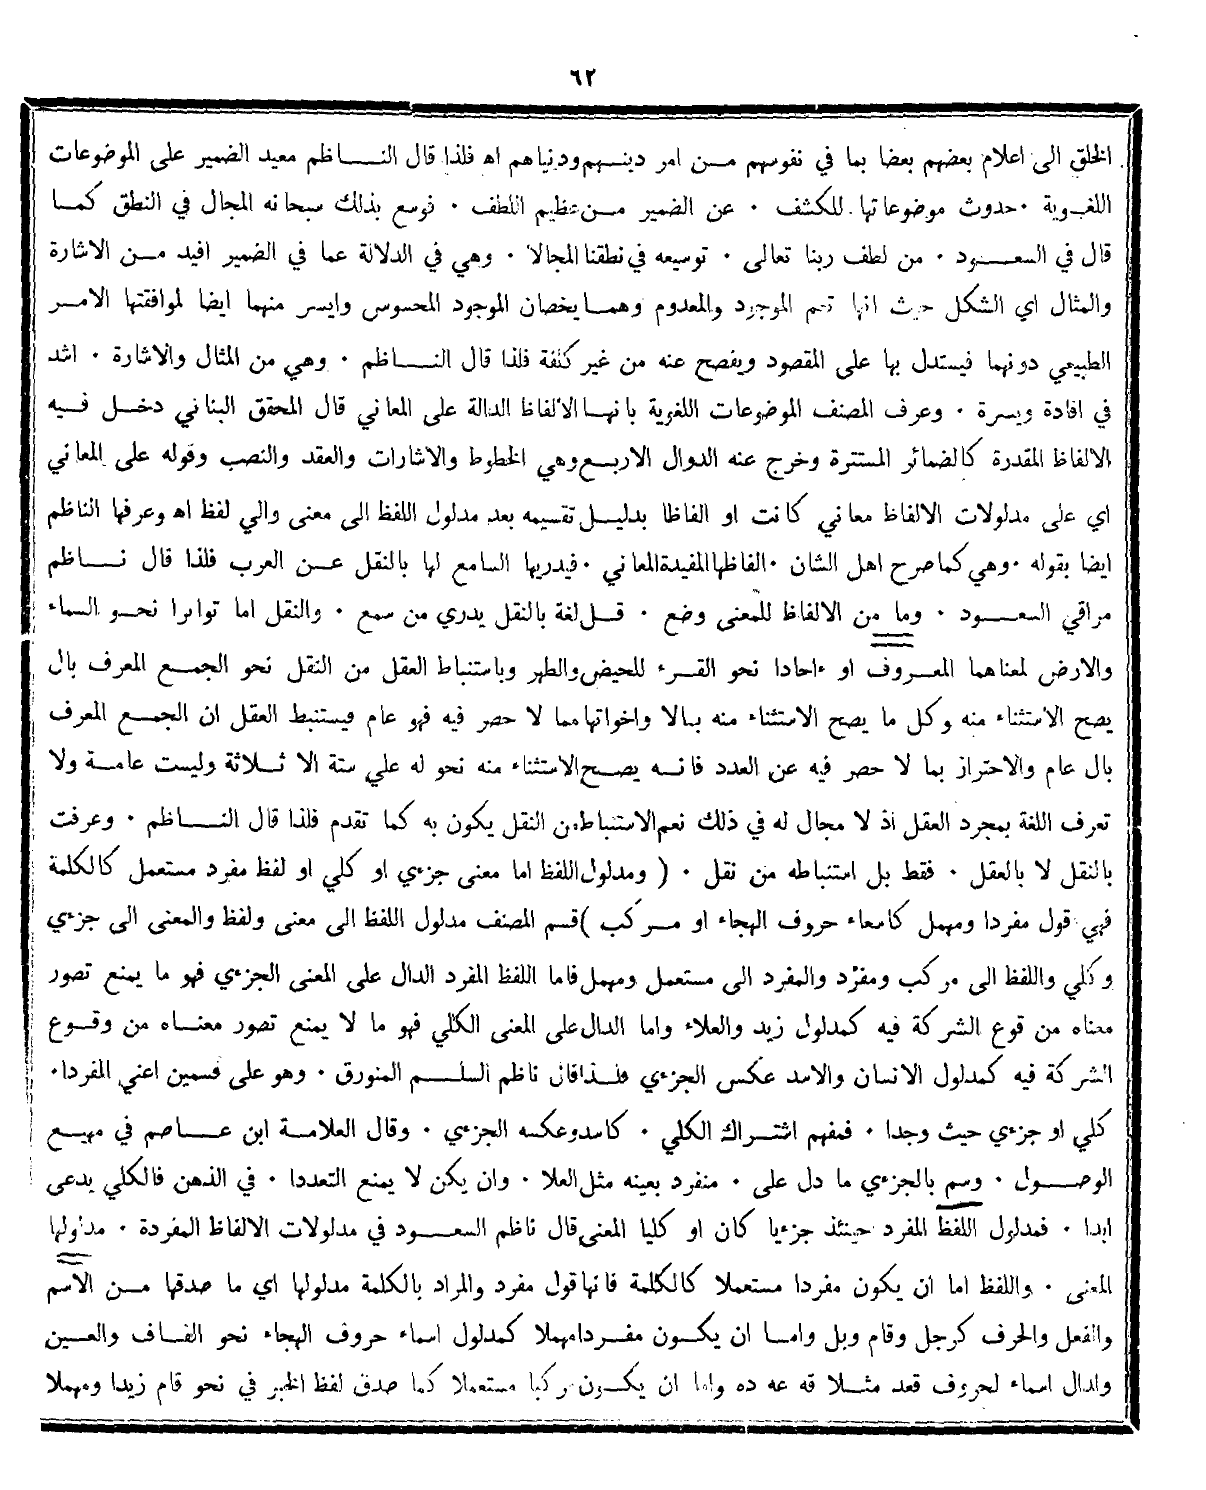 ٦٢
الخلق الى اعلام بعضهم بعضا بما في نفوسهم من امر دينهم ودنياهم اه فلذا قال الناظم معيد الضمير على الموضوعات
اللغوية · حدوث موضوعاتها للكشف · عن الضمير من عظيم اللطف · فوسع بذلك سبحانه المجال في النطق كما
قال في السعود · من لطف ربنا تعالى · توسيعه في نطقنا المجالا · وهي في الدلالة عما في الضمير افيد من الاشارة
والمثال اي الشكل حيث انها تعم الموجود والمعدوم وهما يخصان الموجود المحسوس وايسر منهما ايضا لموافقتها الامر
الطبيعي دونهما فيستدل بها على المقصود ويفصح عنه من غير كلفة فلذا قال الناظم · وهي من المثال والاشارة · اشد
في افادة ويسرة · وعرف المصنف الموضوعات اللغوية بانها الالفاظ الدالة على المعاني قال المحقق البناني دخل فيه
الالفاظ المقدرة كالضمائر المستترة وخرج عنه الدوال الاربع وهي الخطوط والاشارات والعقد والنصب وقوله على المعاني
اي على مدلولات الالفاظ معاني كانت او الفاظا بدليل تقسيمه بعد مدلول اللفظ الى معنى والي لفظ اه وعرفها الناظم
ايضا بقوله · وهي كما صرح اهل الشان · الفاظها المفيدة المعاني · فيدريها السامع لها بالنقل عن العرب فلذا قال ناظم
مراقي السعود · وما من الالفاظ للمعنى وضع · قل لغة بالنقل يدري من سمع · والنقل اما تواترا نحو السماء
والارض لمعناهما المعروف او ءاحادا نحو القرء للحيض والطهر وباستنباط العقل من النقل نحو الجمع المعرف بال
يصح الاستثناء منه وكل ما يصح الاستثناء منه بالا واخواتها مما لا حصر فيه فهو عام فيستنبط العقل ان الجمع المعرف
بال عام والاحتراز بما لا حصر فيه عن العدد فانه يصح الاستثناء منه نحو له علي ستة الا ثلاثة وليست عامة ولا
تعرف اللغة بمجرد العقل اذ لا مجال له في ذلك نعم الاستنباط من النقل يكون به كما تقدم فلذا قال الناظم · وعرفت
بالنقل لا بالعقل · فقط بل استنباطه من نقل · ( ومدلول اللفظ اما معنى جزءي او كلي او لفظ مفرد مستعمل كالكلمة
فهي قول مفردا ومهمل كاسماء حروف الهجاء او مركب ) قسم المصنف مدلول اللفظ الى معنى ولفظ والمعنى الى جزءي
وكلي واللفظ الى مركب ومفرد والمفرد الى مستعمل ومهمل فاما اللفظ المفرد الدال على المعنى الجزءي فهو ما يمنع تصور
معناه من قوع الشركة فيه كمدلول زيد والعلاء واما الدال على المعنى الكلي فهو ما لا يمنع تصور معناه من وقوع
الشركة فيه كمدلول الانسان والاسد عكس الجزءي فلذا قال ناظم السلم المنورق · وهو على قسمين اعني المفردا ·
كلي او جزءي حيث وجدا · فمفهم اشتراك الكلي · كاسد وعكسه الجزءي · وقال العلامة ابن عاصم في مهيع
الوصول · وسم بالجزءي ما دل على · منفرد بعينه مثل العلا · وان يكن لا يمنع التعددا · في الذهن فالكلي يدعى
ابدا · فمدلول اللفظ المفرد حينئذ جزءيا كان او كليا المعنى قال ناظم السعود في مدلولات الالفاظ المفردة · مدلولها
المعنى · واللفظ اما ان يكون مفردا مستعملا كالكلمة فانها قول مفرد والمراد بالكلمة مدلولها اي ما صدقها من الاسم
والفعل والحرف كرجل وقام وبل واما ان يكون مفردا مهملا كمدلول اسماء حروف الهجاء نحو القاف والعين
والدال اسماء لحروف قعد مثلا قه عه ده واما ان يكون مركبا مستعملا كما صدق لفظ الخبر في نحو قام زيدا ومهملا